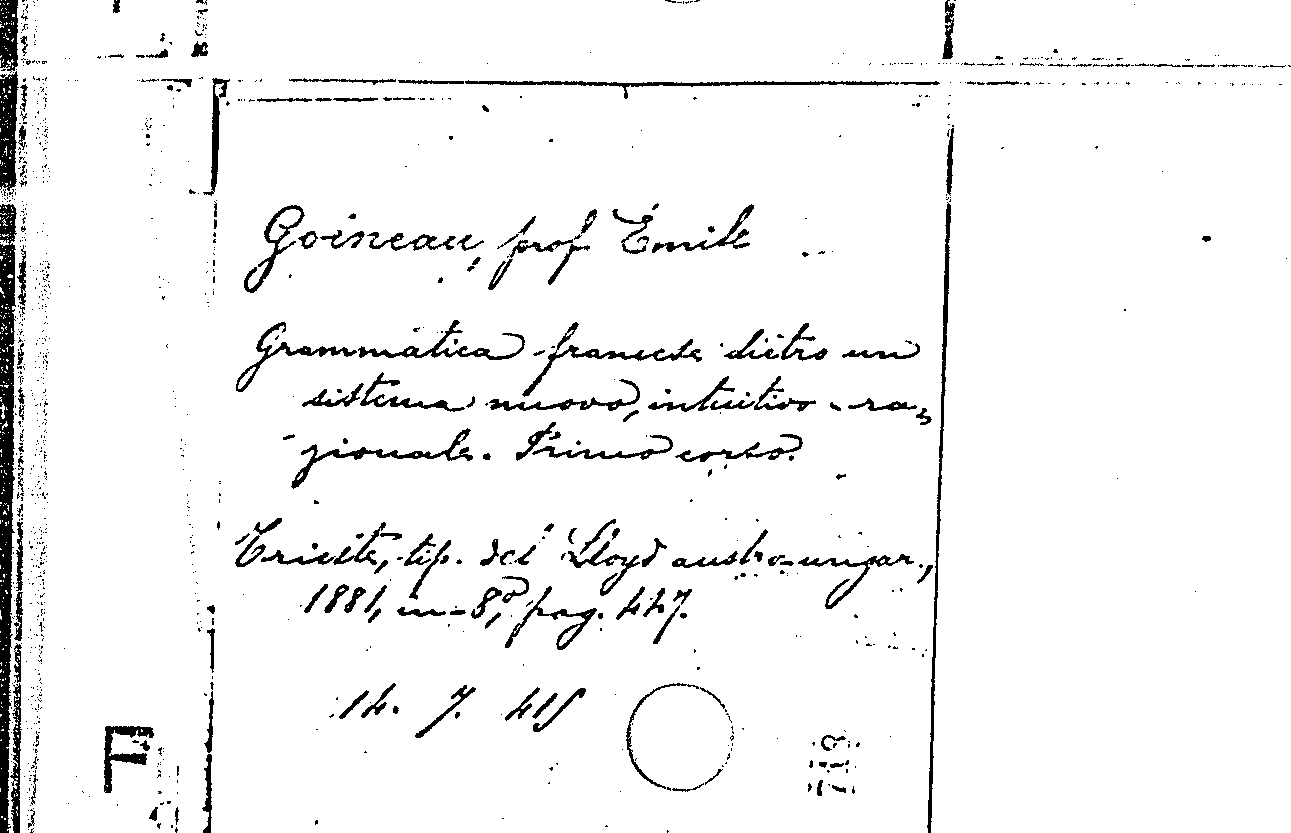 Goineau, prof Émile
Grammatica francese dietro un
sistema nuovo, intuitivo-ra-
zionale. Primo corso.
Trieste, tip. del Lloyd austro-ungar.,
1881, in-8,° pag. 447.
14. 7. 415